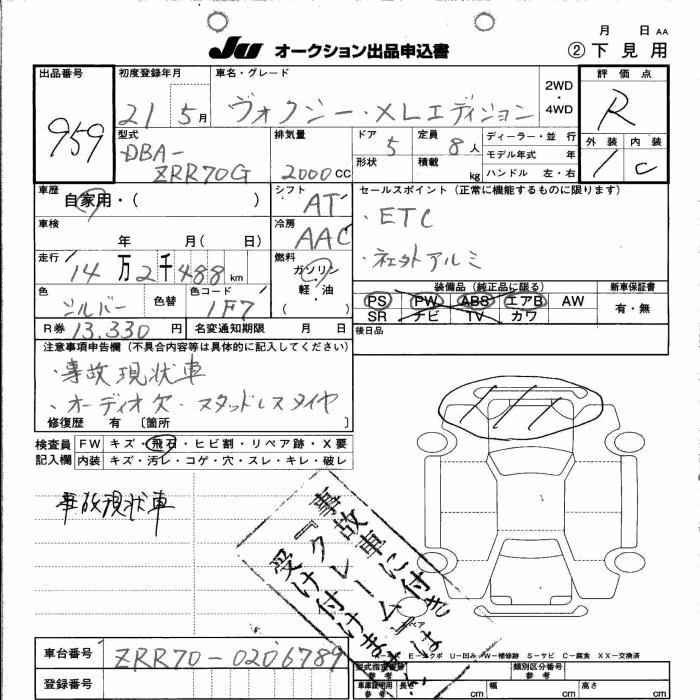 JU オークション出品申込書
月 日 AA
② 下見用
出品番号
959
初度登録年月
21 5月
車名・グレード
ヴォクシー・XLエディション
2WD・4WD
評価点
R
型式
DBA-
ZRR70G
排気量
2000cc
ドア 5
形状
定員 8人
積載 kg
ディーラー・並 行
モデル年式 年
ハンドル 左・右
外装 内装
1 C
車歴
自家用・( )
シフト
AT
セールスポイント (正常に機能するものに限ります)
・ETC
・社外アルミ
車検
年 月( 日)
冷房
AAC
走行
14万2千488km
燃料
ガソリン
軽・油
( )
色
シルバー
色替
色コード
1F7
装備品 (純正品に限る)
PS PW ABS エアB AW
SR ナビ TV カワ
新車保証書
有・無
R券 13,330円
名変通知期限 月 日
後日品
注意事項申告欄 (不具合内容等は具体的に記入してください)
・事故現状車
・オーディオ欠・スタッドレスタイヤ
修復歴 有 〔箇所 〕
検査員
記入欄
FW キズ・飛石・ヒビ割・リペア跡・X要
内装 キズ・汚レ・コゲ・穴・スレ・キレ・破レ
事故現状車
事故車に付き
『クレーム』は
受け付けません
E…エクボ U…凹み W…補修跡 S…サビ C…腐食 XX…交換済
車台番号
ZRR70-0206789
登録番号
型式指定番号
参考
類別区分番号
参考
車庫証明用
参考
長さ cm
幅 cm
高さ cm